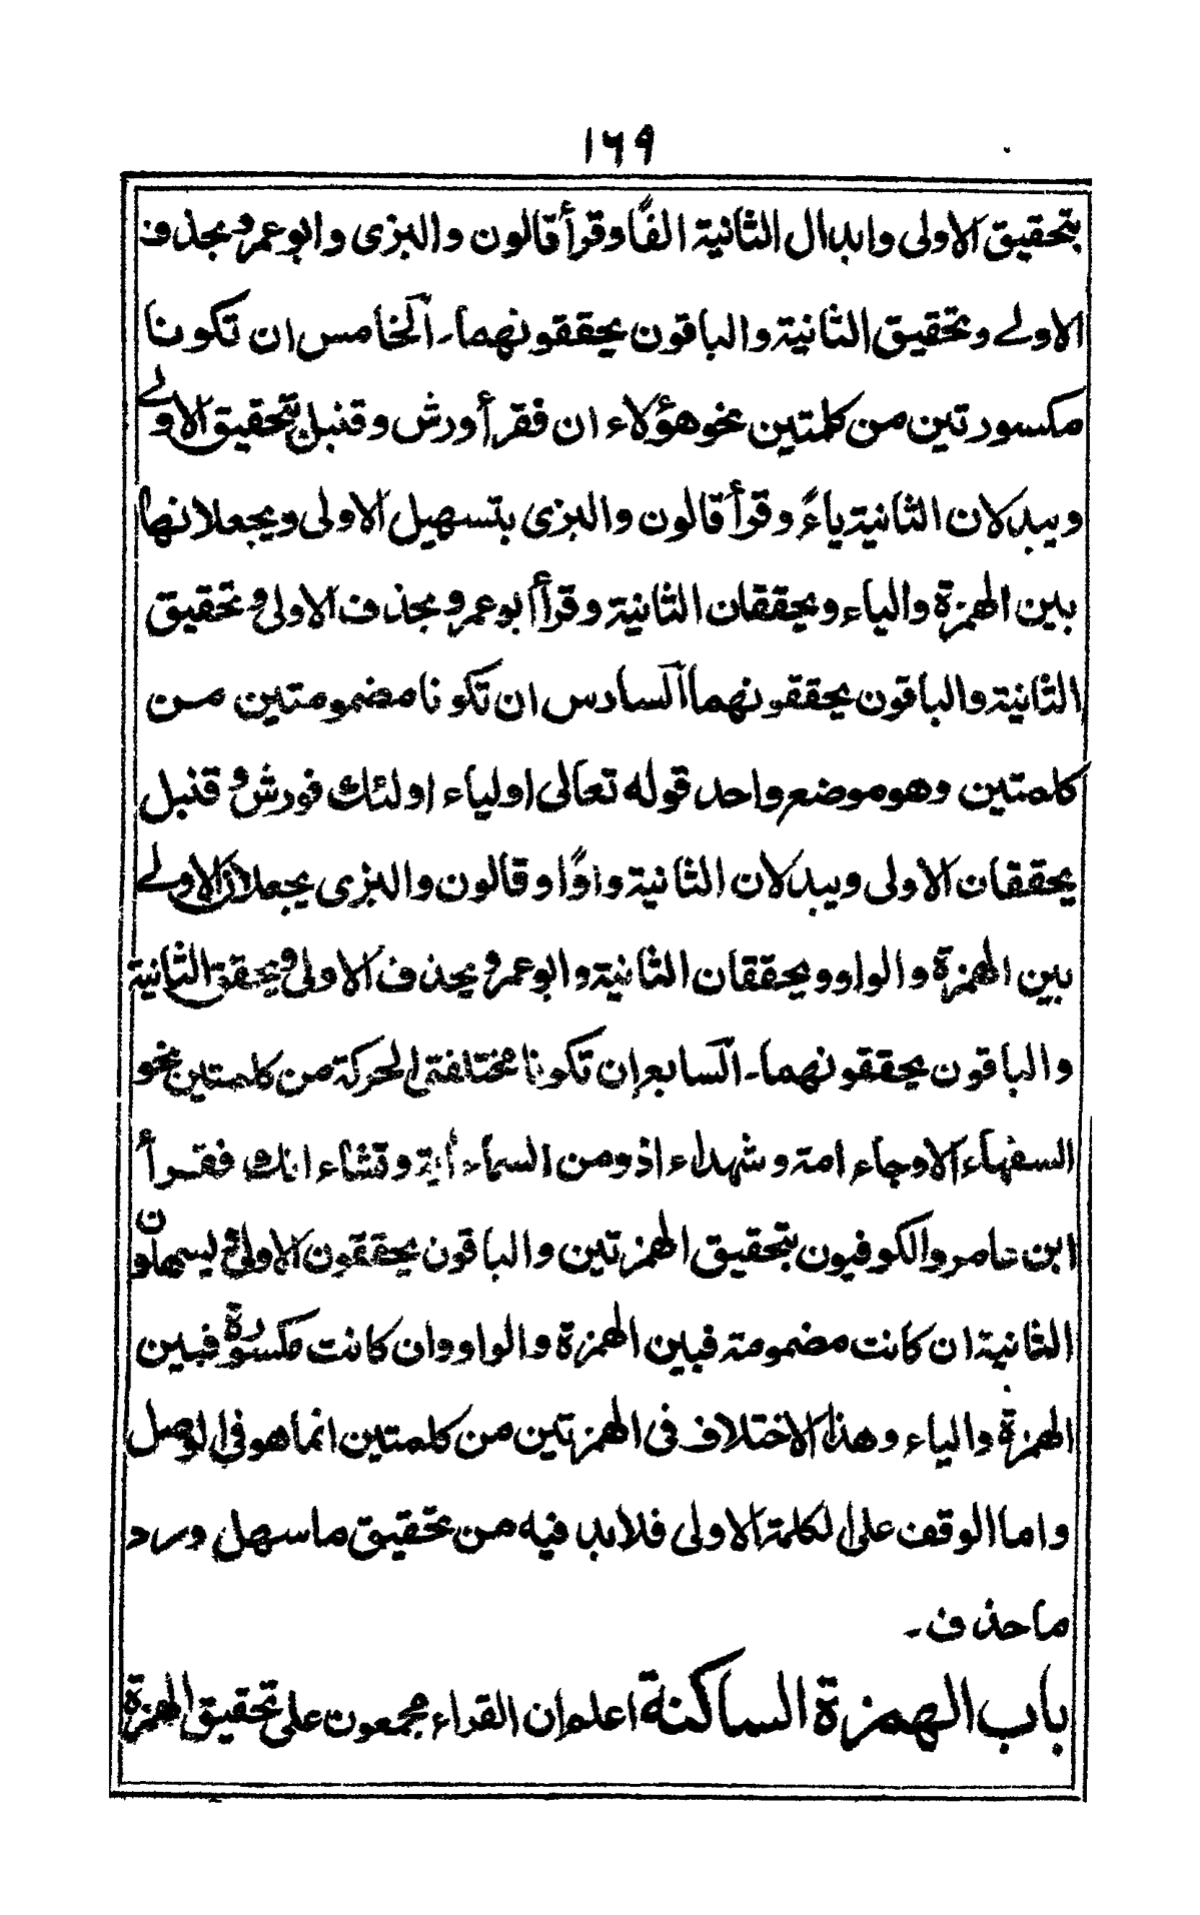 ١٦٩
بتحقيق الاولى وابدال الثانية الفًا وقرأ قالون والبزى وابوعمرو بحذف
الاولے وتحقيق الثانية والباقون يحققونهما۔ الخامس ان تكونا
مكسورتين من كلمتين نحو هؤلاء ان فقرأ ورش وقنبل بتحقيق الاولے
ويبدلان الثانية ياءً وقرأ قالون والبزى بتسهيل الاولى ويجعلانها
بين الهمزة والياء ويحققان الثانية وقرأ ابوعمرو بحذف الاولى وتحقيق
الثانية والباقون يحققونهما السادس ان تكونا مضمومتين من
كلمتين وهو موضع واحد قوله تعالى اولياء اولئك فورش وقنبل
يحققان الاولى ويبدلان الثانية واوًا وقالون والبزى يجعلان الاولے
بين الهمزة والواو ويحققان الثانية وابوعمرو يحذف الاولى ويحقق الثانية
والباقون يحققونهما۔ السابع ان تكونا مختلفتى الحركة من كلمتين نحو
السفهاء الا وجاء امة وشهداء اذ ومن السماء اية ونشاء انك فقرأ
ابن عامر والكوفيون بتحقيق الهمزتين والباقون يحققون الاولى ويسهلون
الثانية ان كانت مضمومة فبين الهمزة والواو وان كانت مكسورة فبين
الهمزة والياء وهذا الاختلاف فى الهمزتين من كلمتين انما هو فى الوصل
واما الوقف على الكلمة الاولى فلابد فيه من تحقيق ما سهل ورد
ما حذف۔
باب الهمزة الساكنة اعلم ان القراء مجمعون على تحقيق الهمزة